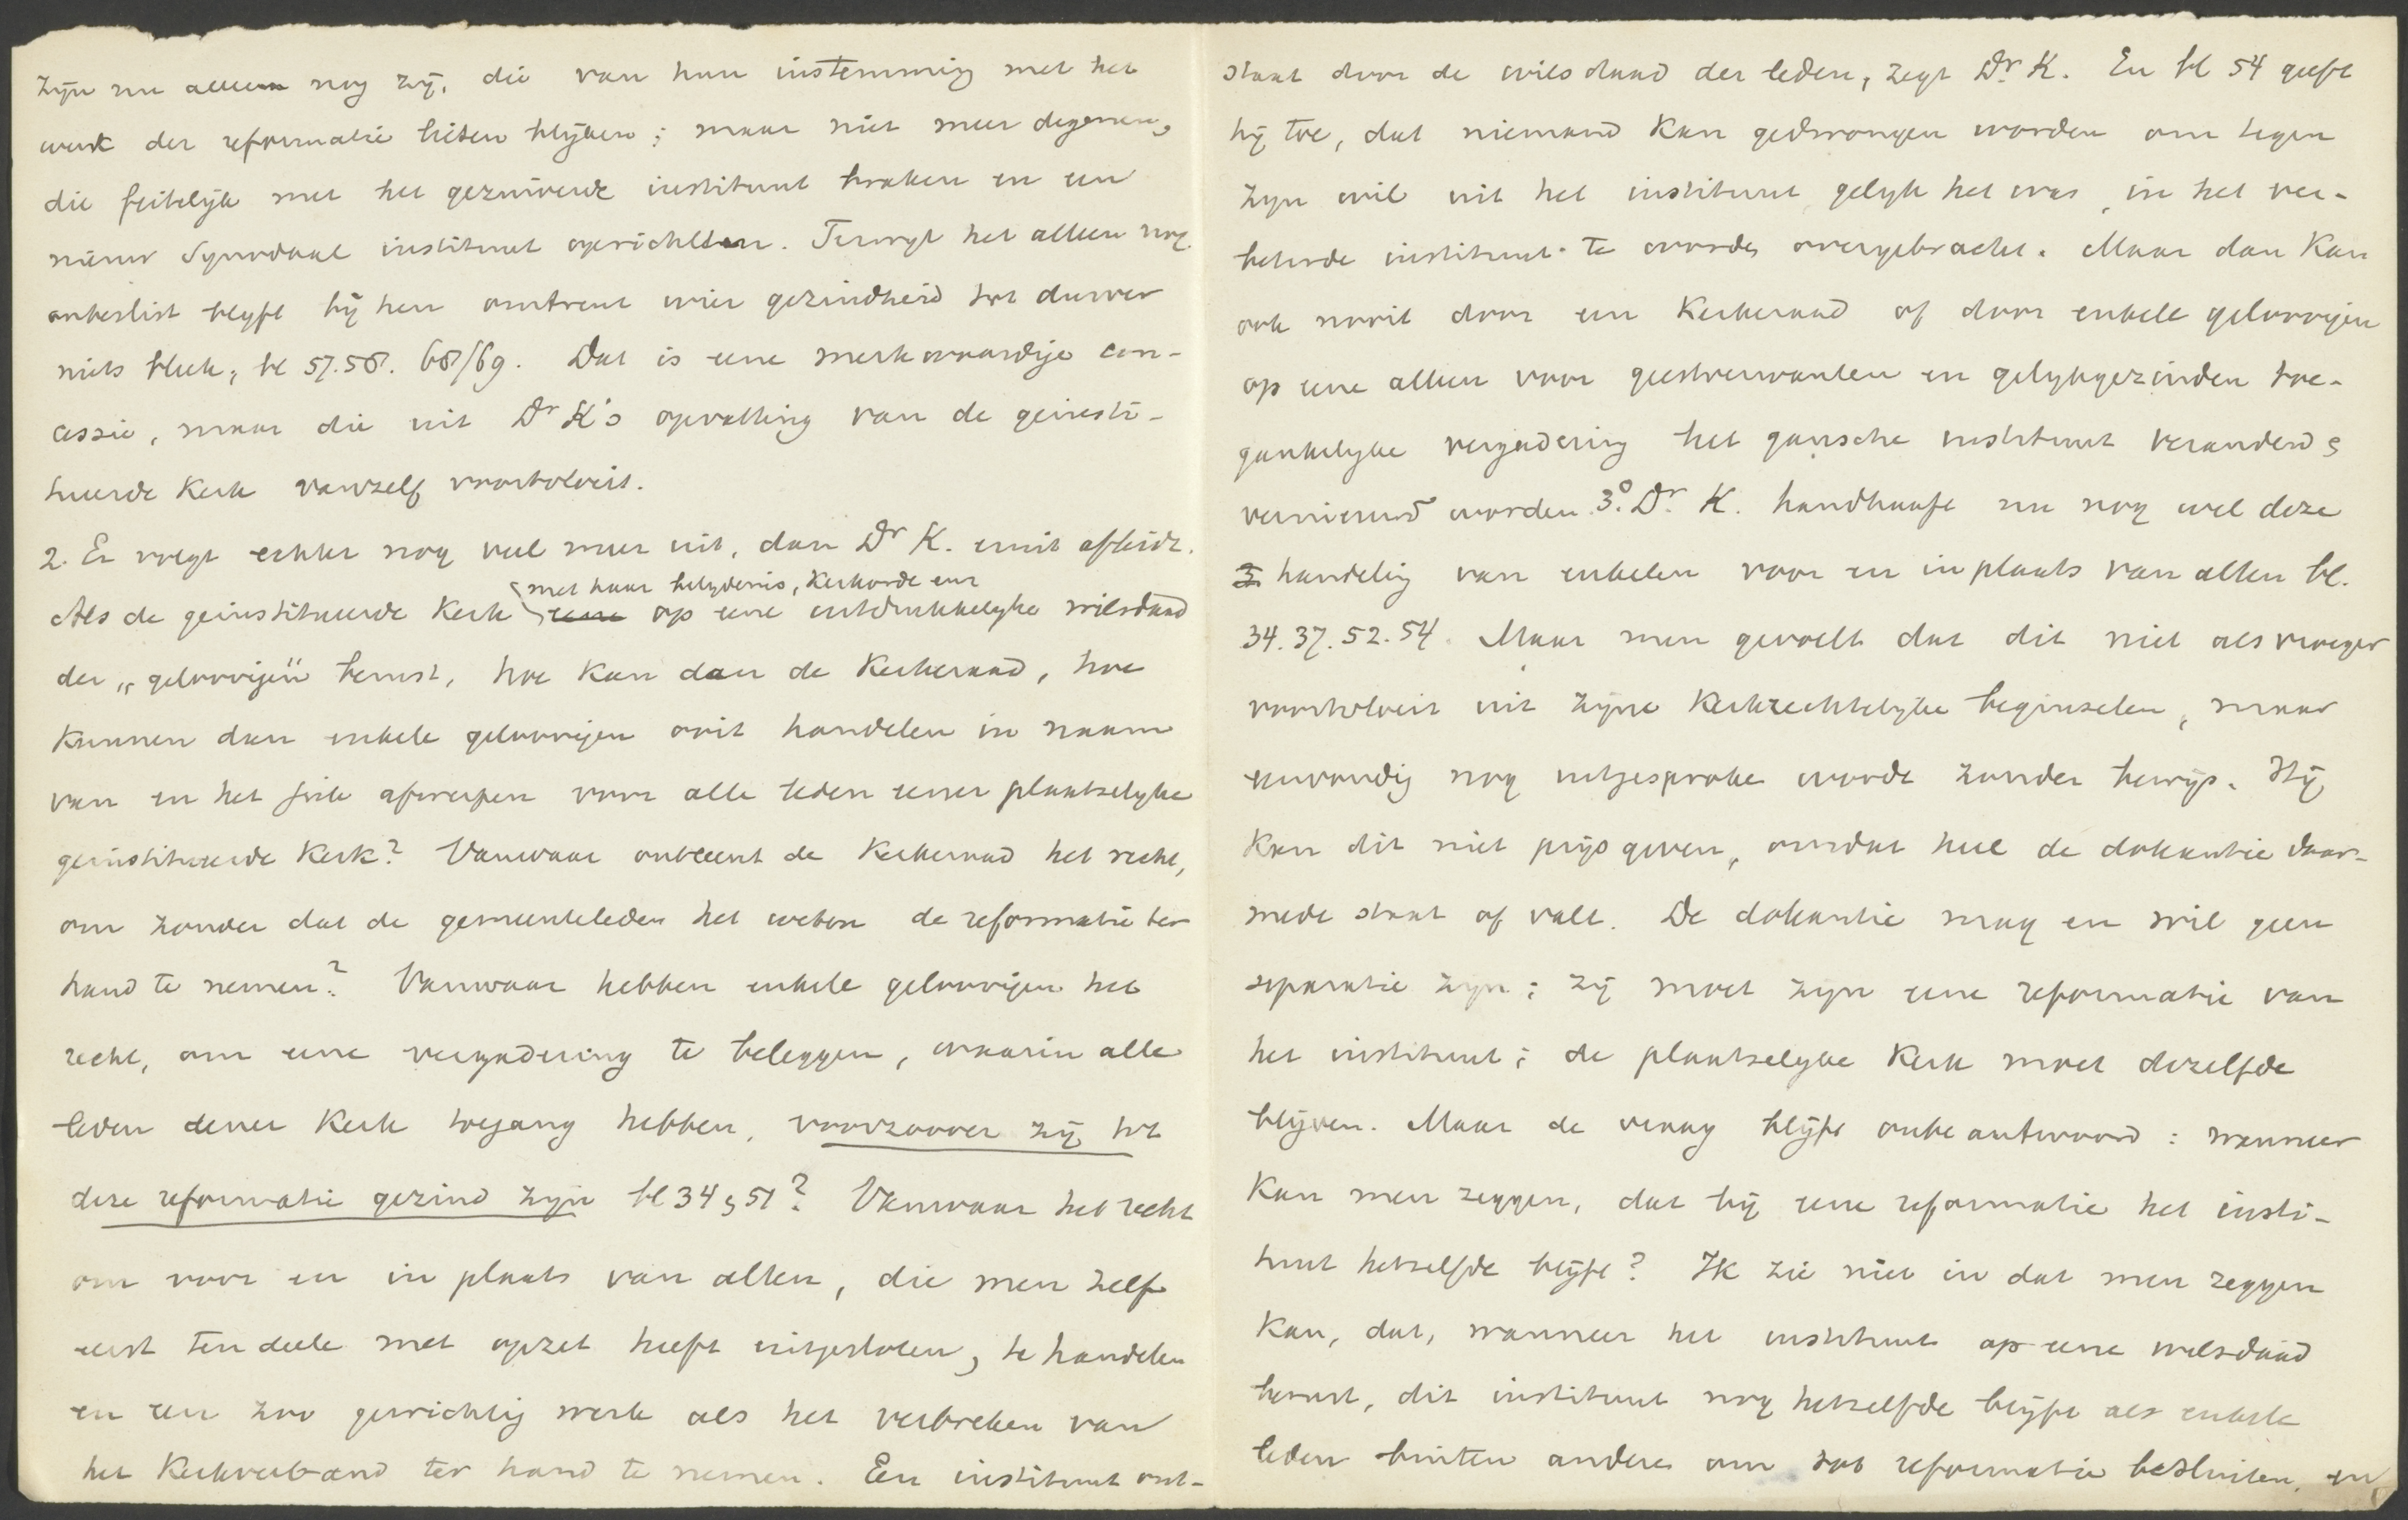 zijn nu alleen nog zij, die van hun instemming met het
werk der reformatie lieten blijken; maar niet meer degenen,
die feitelijk met het gezuiverde instituut braken en een
nieuw Synodaal instituut oprichtten. Terwijl het alleen nog
onbeslist blyft bij hen omtrent wier gezindheid tot dusver
niets bleek, bl 57.58. 68/69. Dat is eene merkwaardige con-
cessie, maar die uit Dr K's opvatting van de geinsti-
tueerde Kerk vanzelf voortvloeit.
2. Er volgt echter nog veel meer uit, dan Dr K. eruit afleidt.
met haar belydenis, Kerkorde enz
Als de geinstitueerde Kerk eene op eene uitdrukkelyke wilsdaad
der „geloovigen" berust, hoe kan dan de Kerkeraad, hoe
kunnen dan enkele geloovigen ooit handelen in naam
van en het juk afwerpen voor alle leden eener plaatselyke
geinstitueerde Kerk? Vanwaar ontleent de Kerkeraad het recht,
om zonder dat de gemeenteleden het weten de reformatie ter
hand te nemen? Vanwaar hebben enkele geloovigen het
recht, om eene vergadering te beleggen, waarin alle
leden dener Kerk toegang hebben, voorzoover zij tot
deze reformatie gezind zijn bl 34, 51? Vanwaar het recht
om voor en in plaats van allen, die men zelf
eerst ten deele met opzet heeft uitgesloten, te handelen
en een zoo gewichtig werk als het verbreken van
het Kerkverband ter hand te nemen. Een instituut ont-
staat door de wilsdaad der leden, zegt Dr. K. En bl 54 geeft
hij toe, dat niemand kan gedwongen worden om tegen
zyn wil uit het instituut gelyk het was, in het ver-
beterde instituut te worden overgebracht. Maar dan kan
ook nooit door een Kerkeraad of door enkele geloovigen
op eene alleen voor geestverwanten en gelykgezinden toe-
gankelyke vergadering het gansche instituut veranderd &
vernieuwd worden. 3o. Dr. K. handhaaft nu nog wel deze
3 handelig van enkelen voor en in plaats van allen bl.
34. 37. 52. 54. Maar men gevoelt dat dit niet als vroeger
voortvloeit uit zijne Kerkrechtelyke beginselen, maar
eenvoudig nog uitgesproke wordt zonder bewijs. Hij
kan dit niet prijs geven, omdat heel de doleantie daar-
mede staat of valt. De doleantie mag en wil geen
separatie zyn; zij moet zyn eene reformatie van
het instituut; de plaatselyke Kerk moet dezelfde
blijven. Maar de vraag blijft onbeantwoord: wanneer
kan men zeggen, dat bij eene reformatie het insti-
tuut hetzelfde blijft? Ik zie niet in dat men zeggen
kan, dat, wanneer het instituut op eene wilsdaad
berust, dit instituut nog hetzelfde blijft als enkele
leden buiten andere om tot reformatie besluiten, en